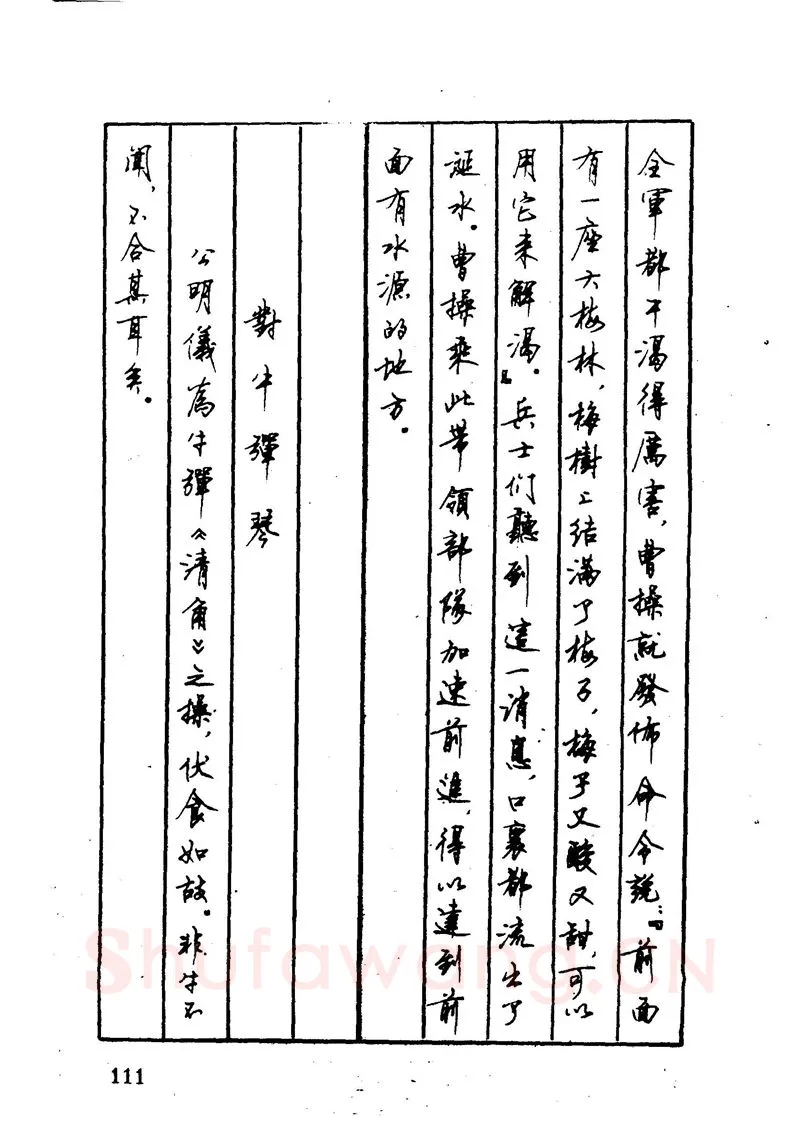 全軍都干渴得厲害，曹操就發佈命令說：“前面
有一座大梅林，梅樹上結滿了梅子，梅子又酸又甜，可以
用它来解渴。”兵士们聽到這一消息，口裏都流出了
涎水。曹操乘此帶領部隊加速前進，得以達到前
面有水源的地方。
對牛彈琴
公明儀為牛彈《清角》之操，伏食如故。非牛不
聞，不合其耳矣。
111
Shufawang.CN